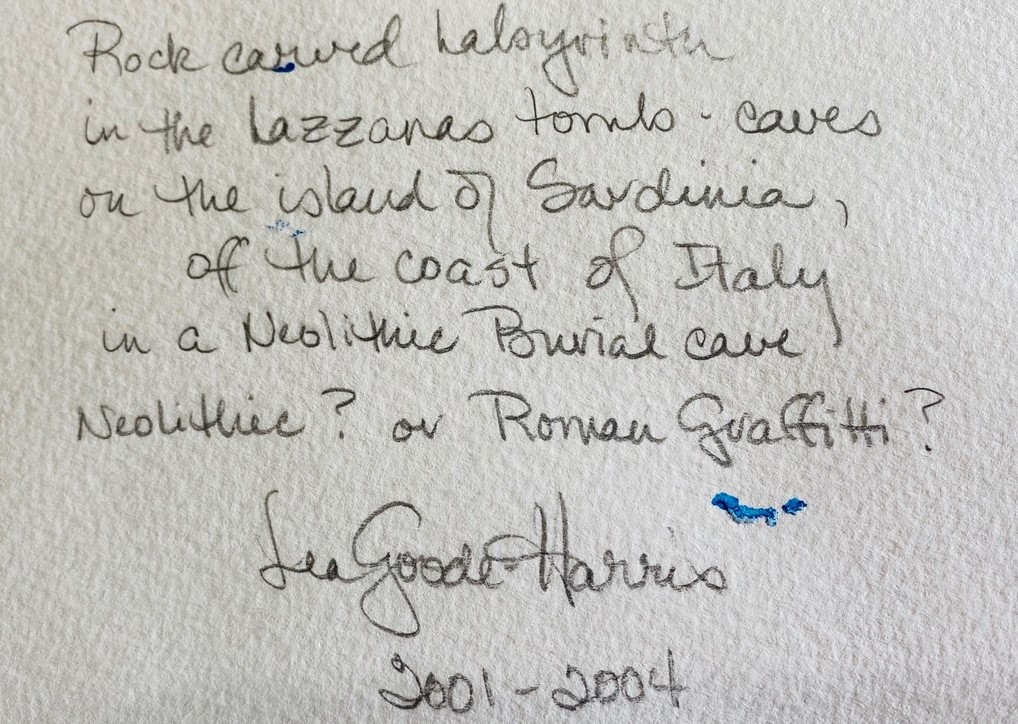 Rock carved labyrinth
in the Lazzanas tombs - caves
on the island of Sardinia,
off the coast of Italy
in a Neolithic Burial cave
Neolithic? or Roman Graffitti?
Lea Goode-Harris
2001-2004